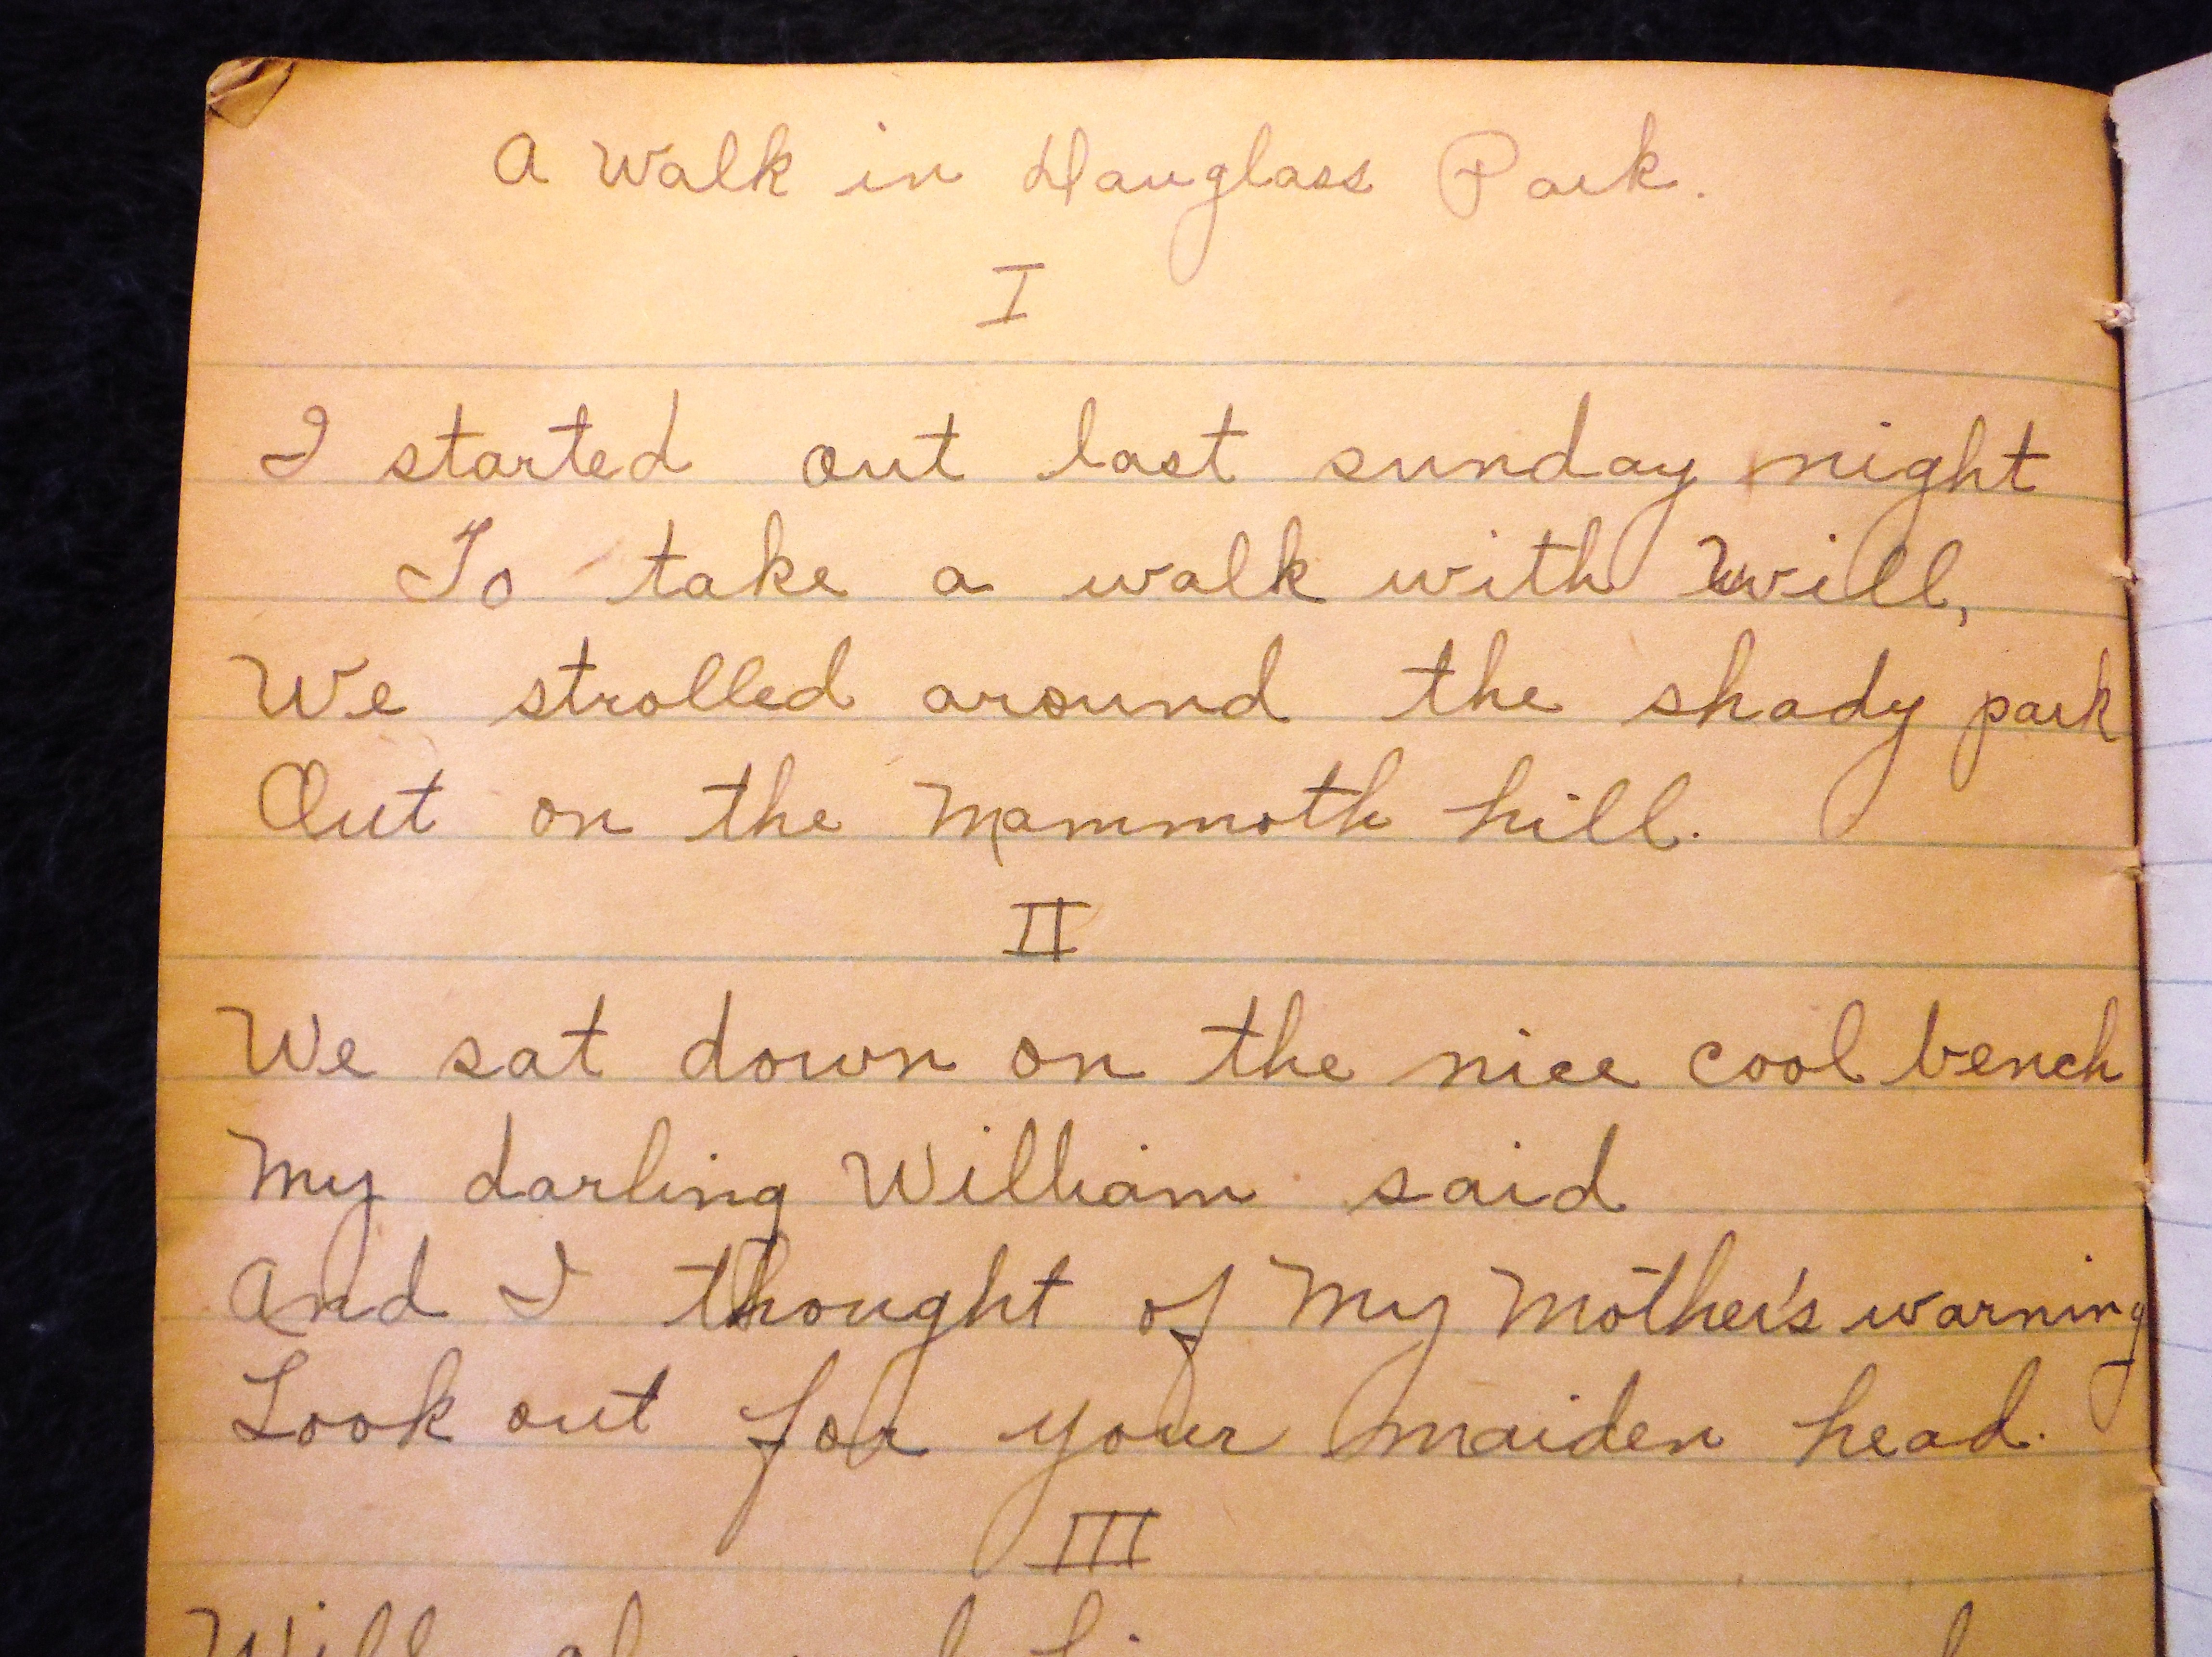 A Walk in Dauglass Park.
I
I started out last sunday night
To take a walk with Will,
We strolled around the shady park
Out on the Mammoth hill.
II
We sat down on the nice cool bench
My darling William said
And I thought of My Mother's warning
Look out for your maiden head.
III
Will